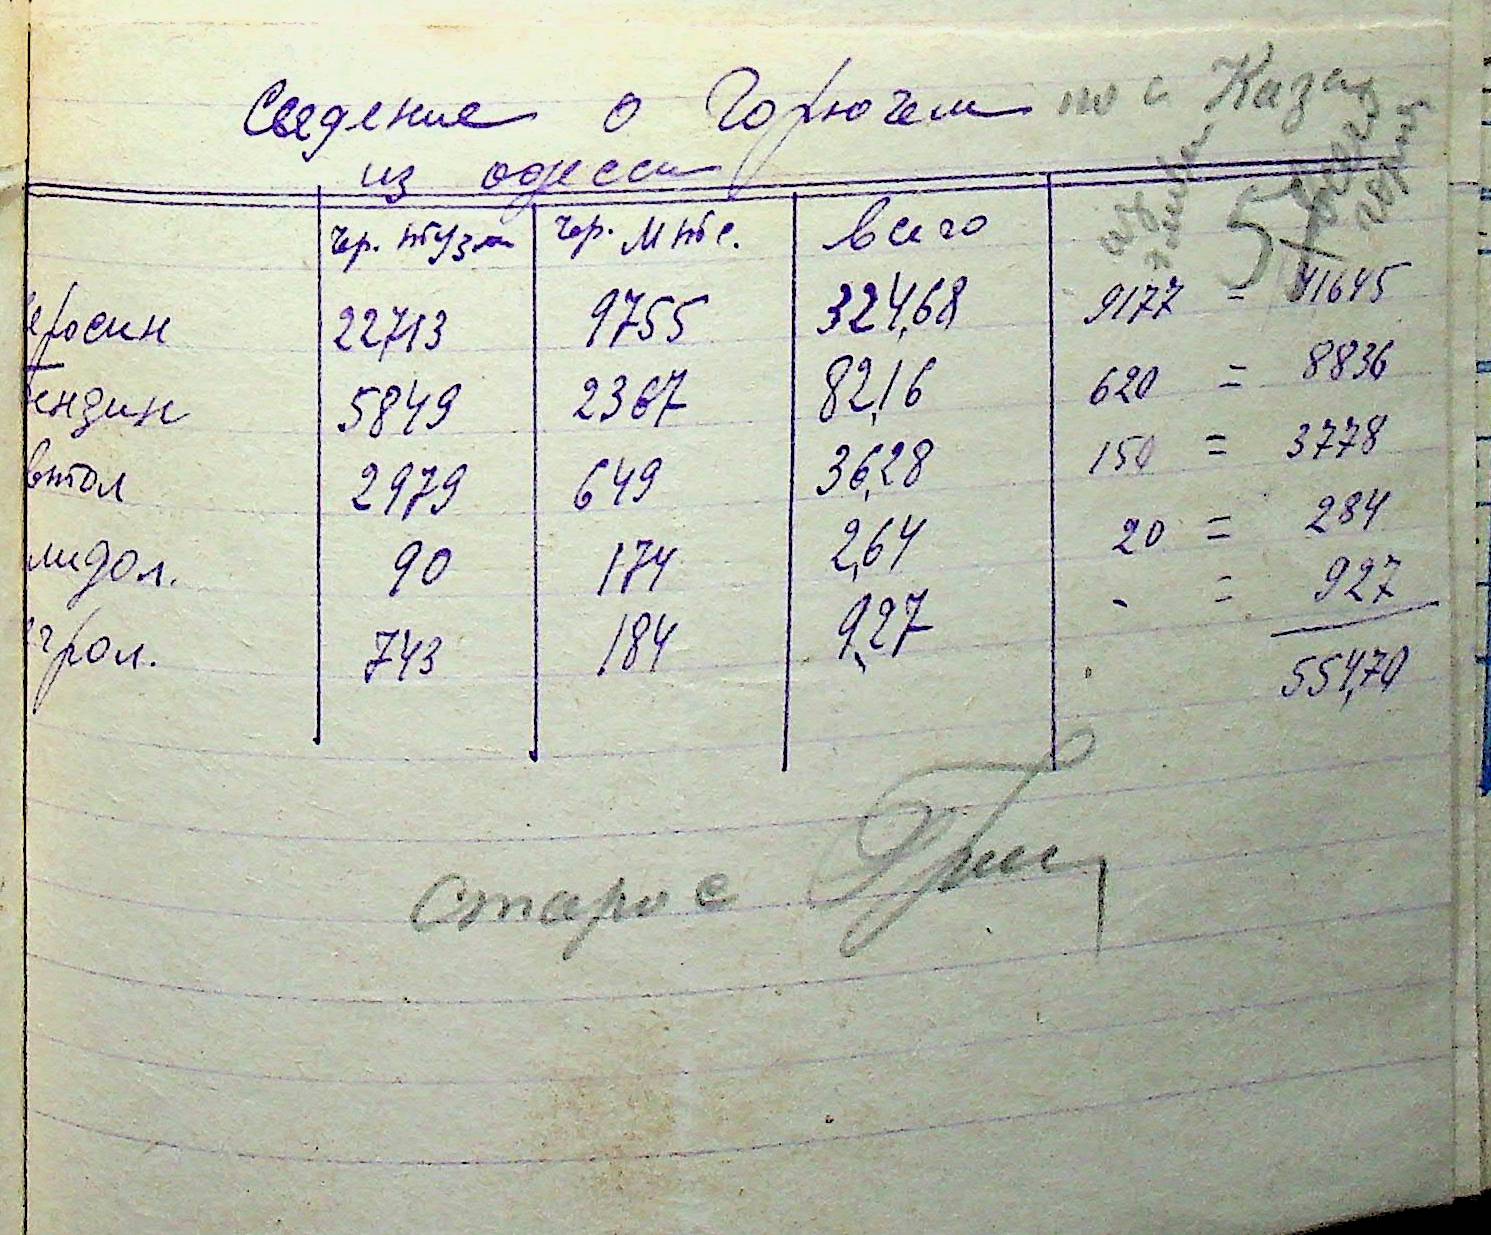 Сведение о Горючем по с Каза
из одесси
чер. мтс. всего
еросин 22713 9755 324,68 9177 = 41645
ензин 5849 2367 82,16 620 = 8836
втол 2979 649 36,28 150 = 3778
лидол. 90 174 2,64 20 = 284
грол. 743 184 9,27 - = 927
554,70
староc